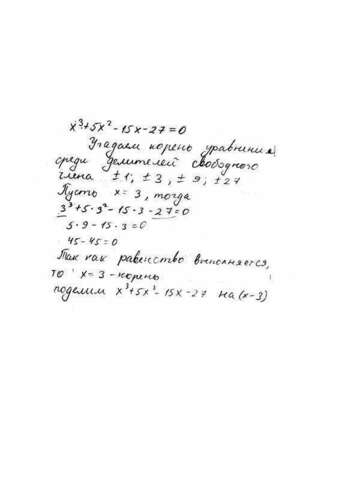 x³+5x²-15x-27=0
Угадаем корень уравнения
среди делителей свободного
члена ±1; ±3, ±9; ±27
Пусть x=3, тогда
3³+5·3²-15·3-27=0
5·9-15·3=0
45-45=0
Так как равенство выполняется,
то x=3-корень
поделим x³+5x²-15x-27 на (x-3)